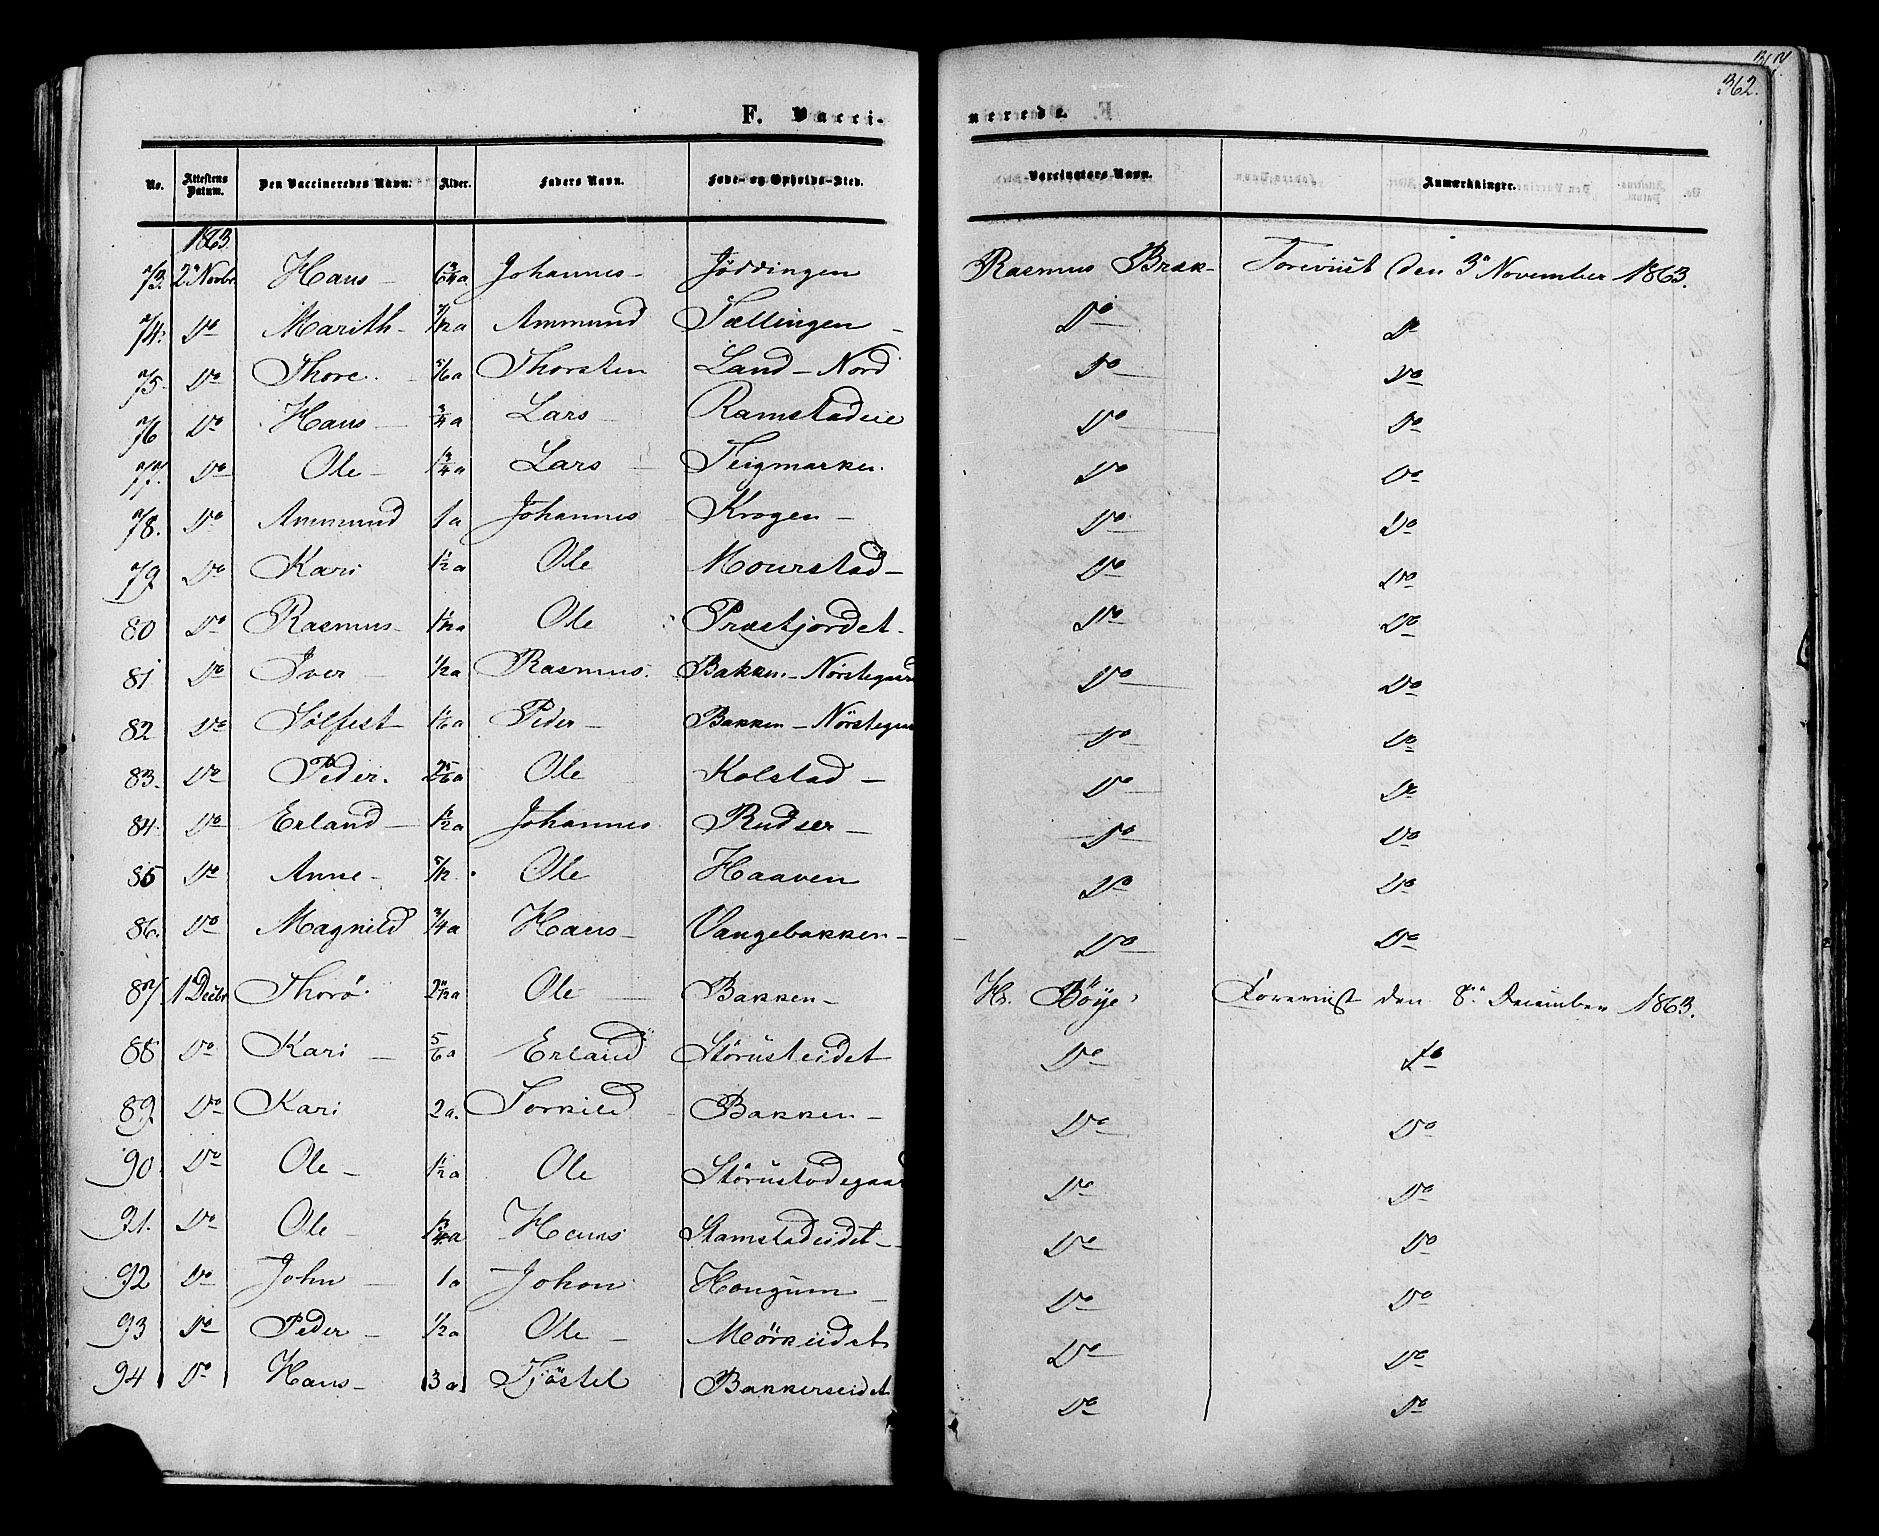 362.
F. Vacci- nerede.
No. Attestens Datum. Den Vaccineredes Navn. Alder. Faders Navn. Føde- og Opholds-Sted. Vaccinators Navn. Anmærkninger.
1863.
73. 2 Novbr. Hans - Johannes - Jøddingen Rasmus Bræk- Foreviist den 3 November 1863.
74. Do Marith - 7/12 a Ammund Sællingen - Do Do
75. Do Thore. 5/6 a Thorsten Land - Nord Do Do
76 Do Hans - 3/4 a Lars - Ramstadeie Do Do
77. Do Ole - 1 3/4 a Lars - Teigmarken. Do Do
78. Do Ammund 1 a Johannes - Krogen - Do Do
79. Do Kari 1/2 a Ole Mourstad - Do Do
80 Do Rasmus - Ole Præstjordet. Do Do
81 Do Iver - 1/2 a Rasmus. Bakken - Nørstegaard Do Do
82 Do Sølfest Peder - Bakken - Nørstegaa Do Do
83. Do Peder. 2 5/6 a Ole Kolstad - Do Do
84. Do Erland - 1 1/2 a Johannes Rudser - Do Do
85 Do Anne - 5/12. Ole Haaven Do Do
86. Do Magnild 3/4 a Hans - Vangebakken - Do Do
87 1 Decbr Thorø. Ole - Bakken - Hr. Bøye, Foreviist den 8. December 1863.
88 Do Kari - 5/6 a Erland Størusteidet Do Do
89 Do Kari 2 a. Torkild - Bakken - Do Do
90. Do Ole - 1 1/2 a Ole Størustadegaar Do Do
91. Do Ole - 1 3/4 a Hans Stamstadeidet - Do Do
92 Do John - 1 a Johan Hongum - Do Do
93 Do Peder - 1/2 a Ole - Mørkeidet Do Do
94 Do Hans - 3 a Tjøstel Bakkerseidet Do Do